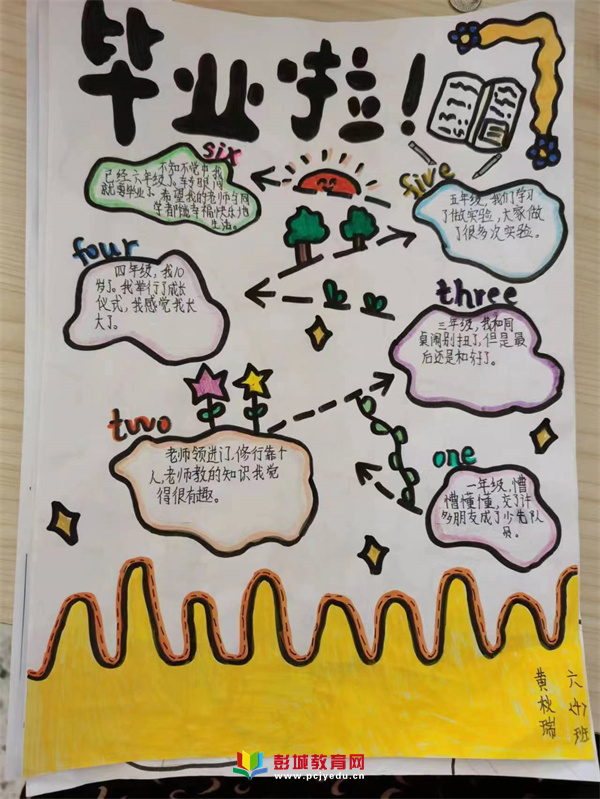 毕业啦!
six
不知不觉中我
已经六年级了。转眼间
就要毕业了。希望我的老师与同
学者都能幸福快乐地
生活。
five
五年级,我们学习
了做实验,大家做
了很多次实验。
four
四年级,我10
岁了。我举行了成长
仪式,我感觉我长
大了。
three
三年级,我和同
桌闹别扭了,但是最
后还是和好了。
two
老师领进门,修行靠个
人,老师教的知识我觉
得很有趣。
one
一年级,懵
懵懂懂,交了许
多朋友成了少先队
员。
六(4)班
黄秋瑞
彭城教育网
www.pcjyedu.cn